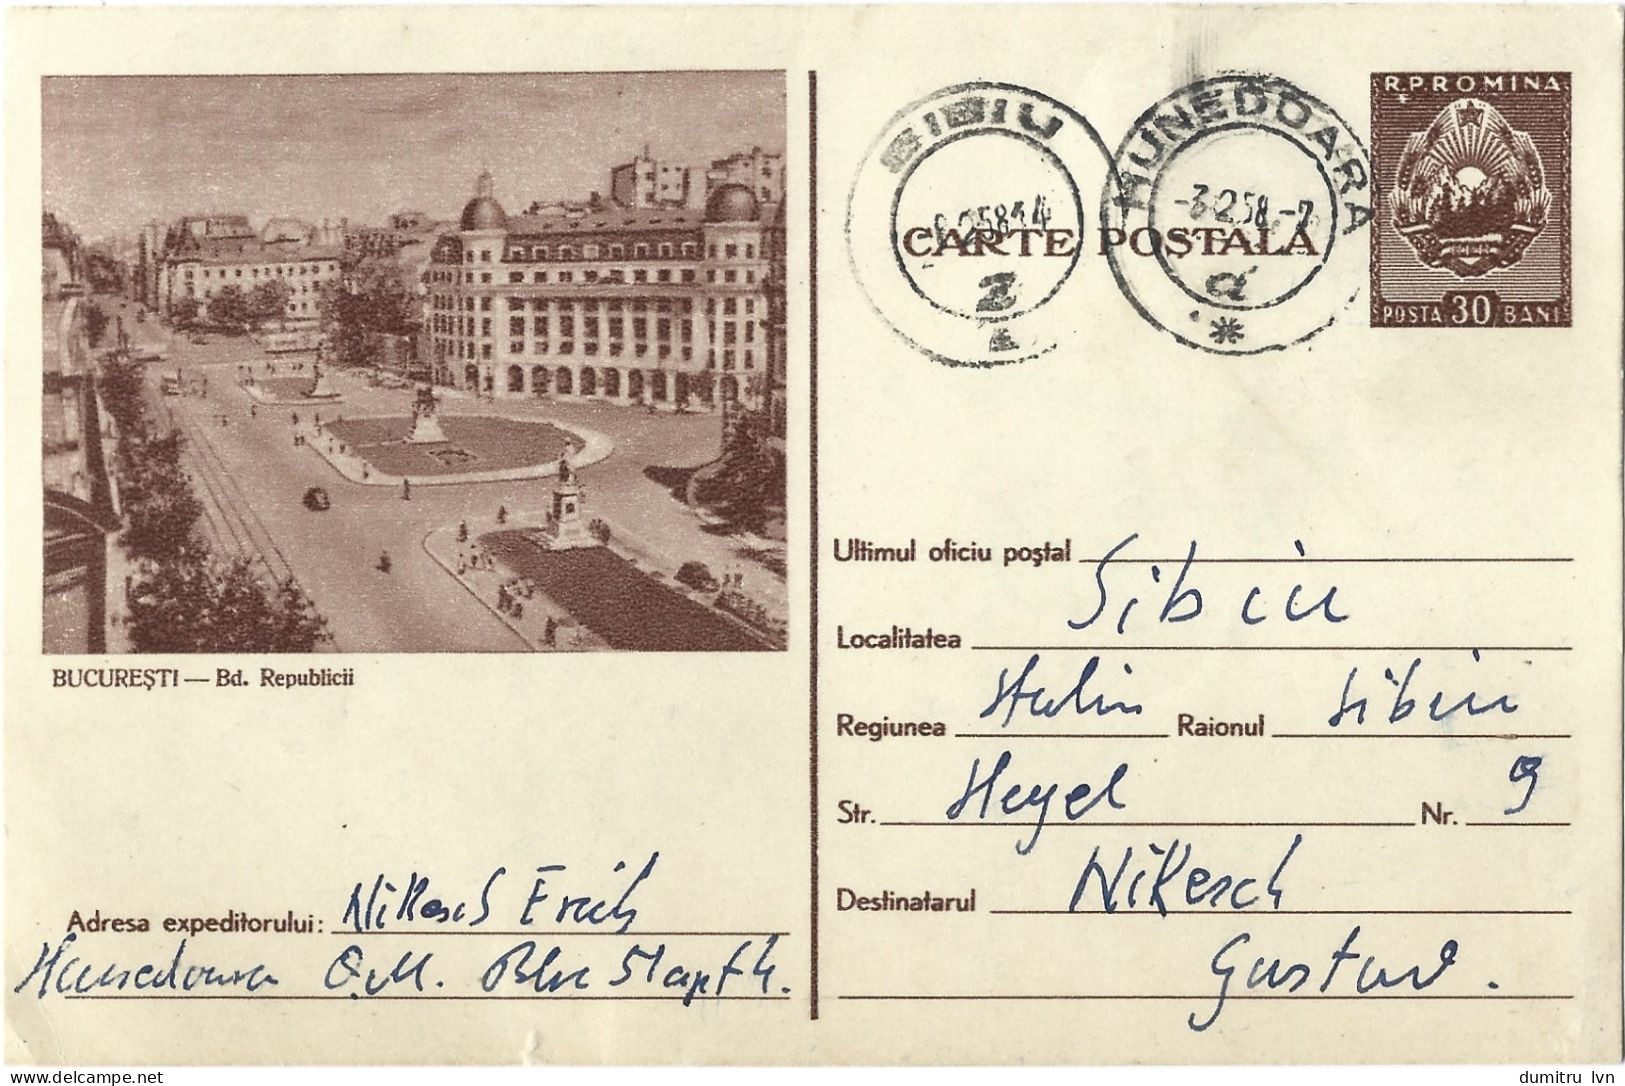 R.P.ROMINA
POSTA 30 BANI
SIBIU
2
HUNEDOARA
-3.2.58.-7
a
CARTE POȘTALĂ
BUCUREȘTI — Bd. Republicii
Ultimul oficiu poștal
Localitatea Sibiu
Regiunea Stalin Raionul Sibiu
Str. Hegel Nr. 9
Destinatarul Nikesch
Gustav.
Adresa expeditorului: Nikesch Erich
Hunedoara O.M. Bloc 51 apt 4.
dumitru lvn